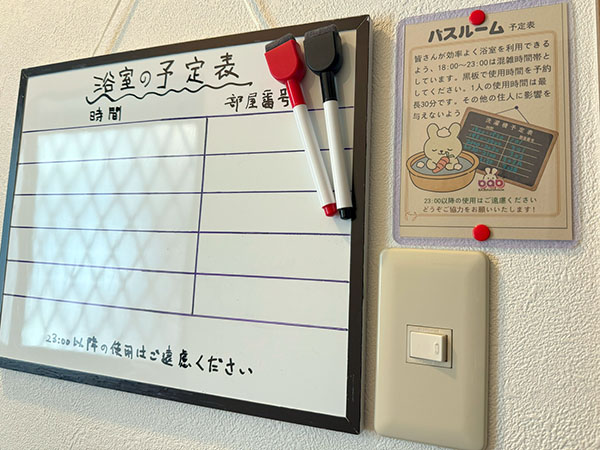 浴室の予定表
時間
部屋番号
23:00以降の使用はご遠慮ください
バスルーム 予定表
皆さんが効率よく浴室を利用できる
よう、18:00〜23:00は混雑時間帯と
しています。黒板で使用時間を予約
してください。1人の使用時間は最
長30分です。その他の住人に影響を
与えないよう
洗濯機予定表
23:00以降の使用はご遠慮ください
どうぞご協力をお願いいたします!